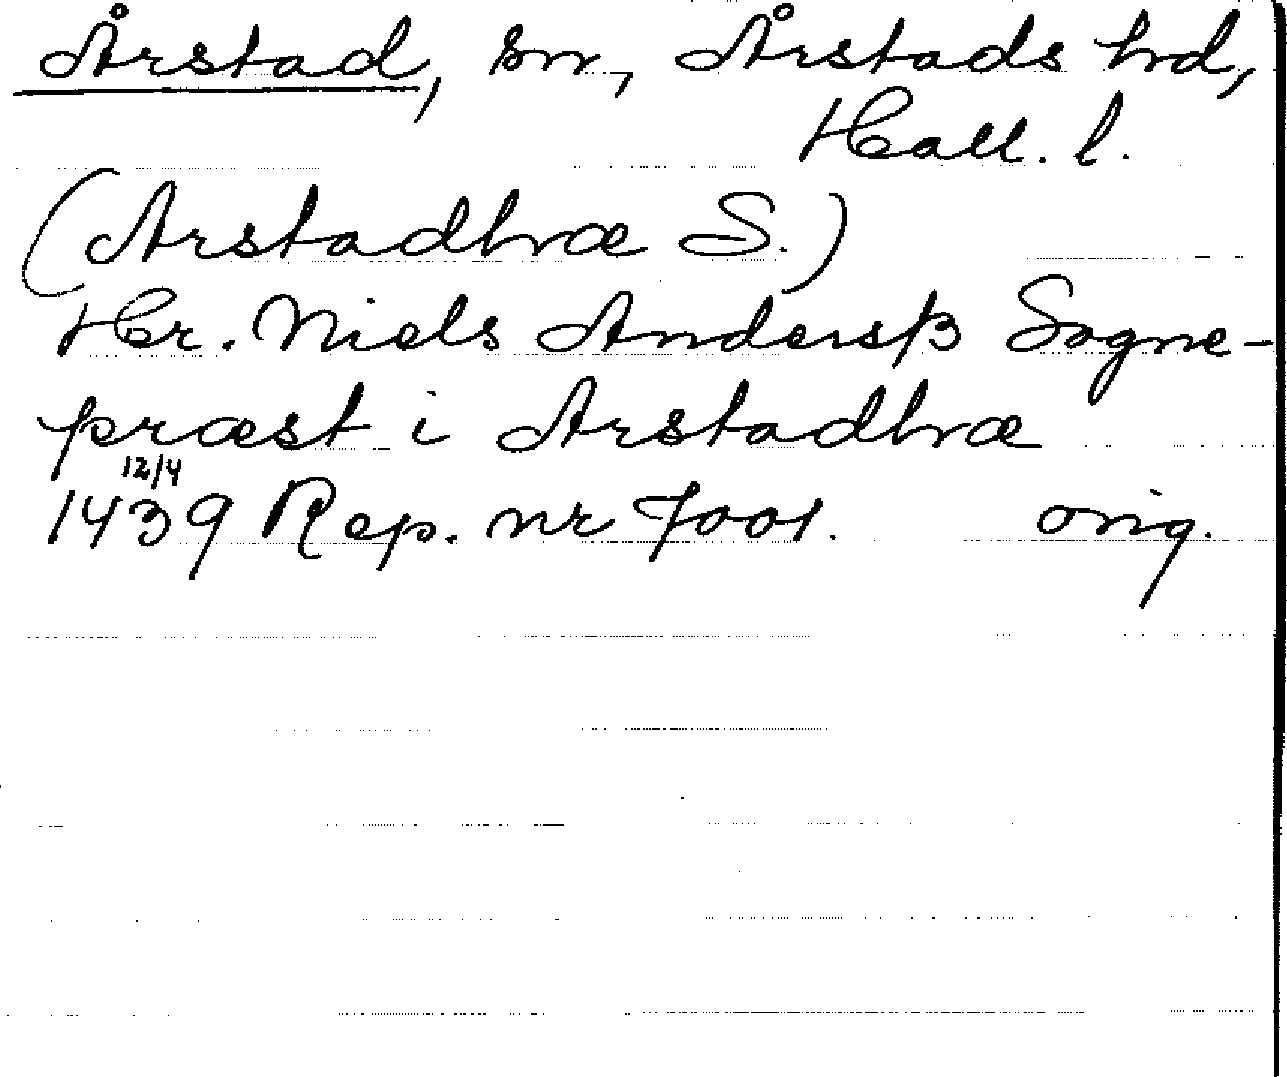 Årstad, sn, Årstads hd,
Hall. l.
(Arstadhræ S.)
Hr. Niels Andersß Sogne-
præst i Arstadhræ
12/4
1439 Rep. nr 7001. orig.